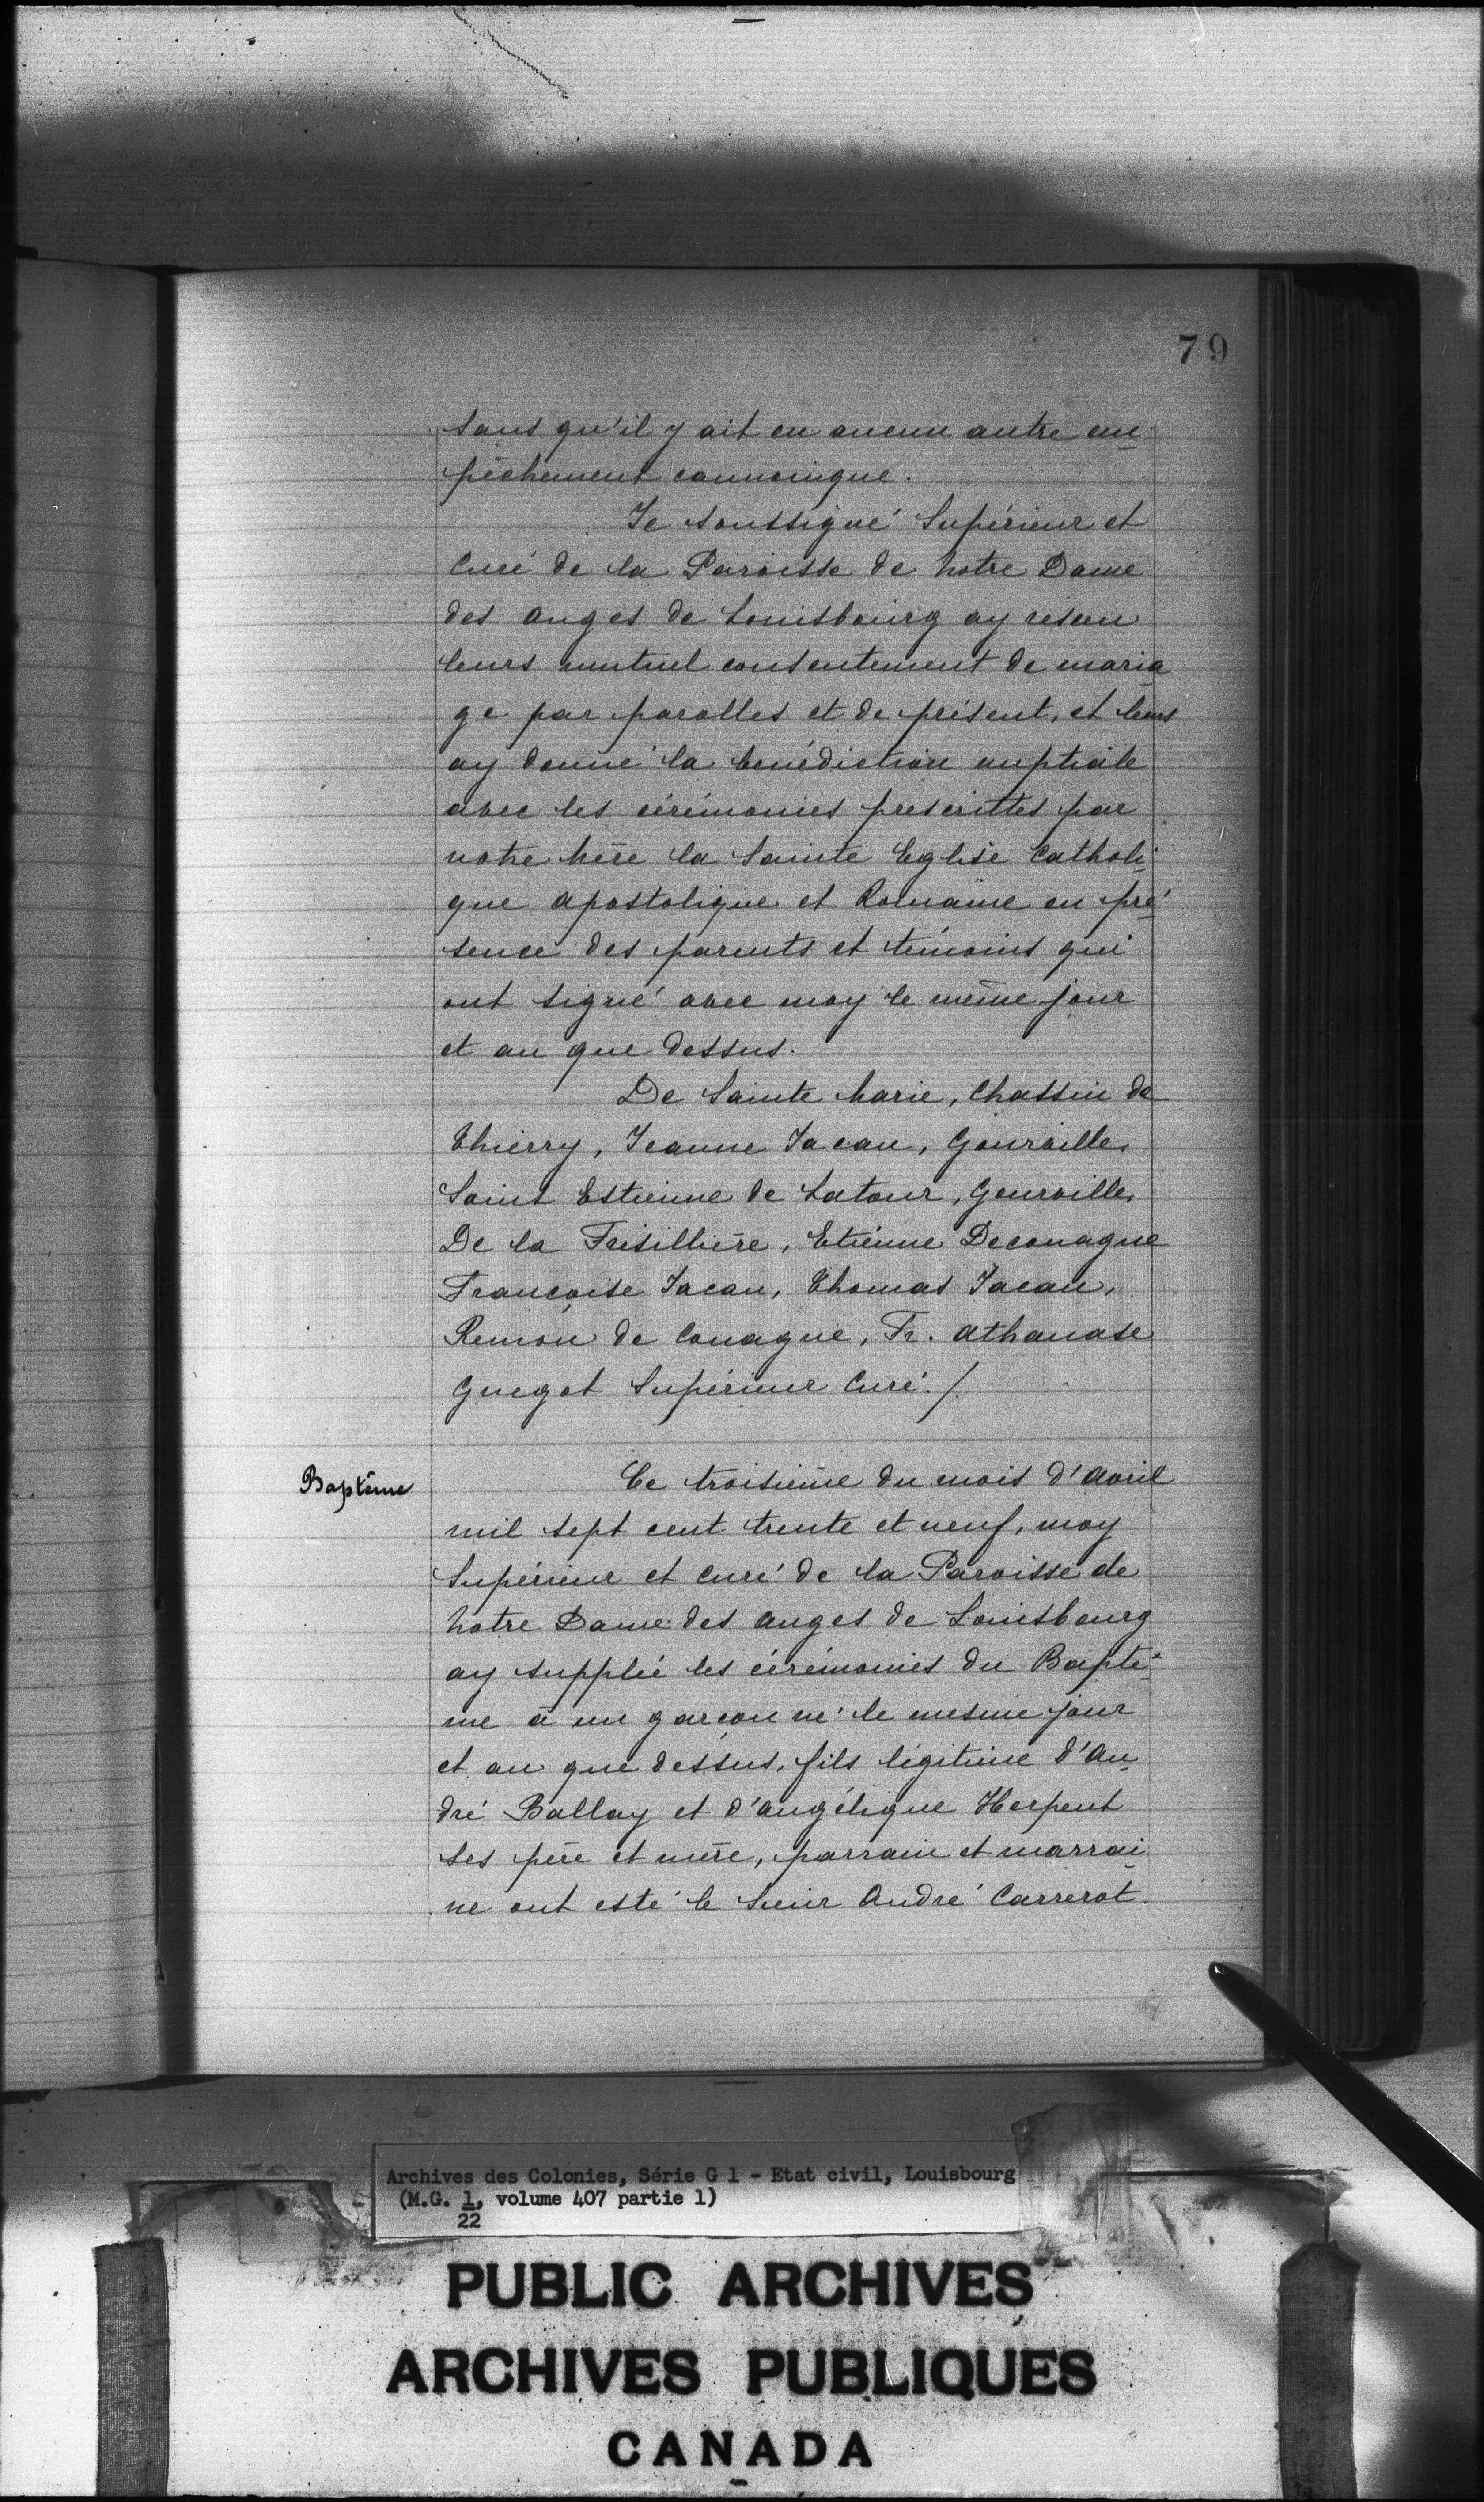 79
sans qu'il y ait eu aucun autre em
pêchement cannonique.
Je soussigné Supérieur et
Curé de la Paroisse de Notre Dame
des Anges de Louisbourg ay reseeu
leurs mutuel consentement de maria
ge par parolles et de présent, et leurs
ay donné la benédiction nuptiale
avec les cérémonies prescrittes par
notre Mère la Sainte Eglise Catholi
que Apostolique et Romaine en pré
sence des parents et témoins qui
ont signé avec moy le même jour
et an que dessus.
De Sainte Marie, Chassin de
Thierry, Jeanne Jacau, Gourville,
Saint Estienne de Latour, Gourville,
De la Fresillière, Etiénne Deconague
Francoise Jacau, Thomas Jacau,
Remon de Conague, Fr. Athanase
Guegot Supérieur Curé./.
Baptême
Ce troisième du mois d'Avril
mil sept cent trente et neuf, moy
Supérieur et Curé de la Paroisse de
Notre Dame des Anges de Louisbourg
ay supplié les cérémonies du Baptê
me à un garçon né le mesme jour
et an que dessus, fils légitime d'An
dré Ballay et d'Angélique Herpent
ses père et mère, parrain et marrai
ne ont esté le Sieur André Carrerot
Archives des Colonies, Série G 1 - Etat civil, Louisbourg
(M.G. 1, volume 407 partie 1)
22
PUBLIC ARCHIVES
ARCHIVES PUBLIQUES
CANADA